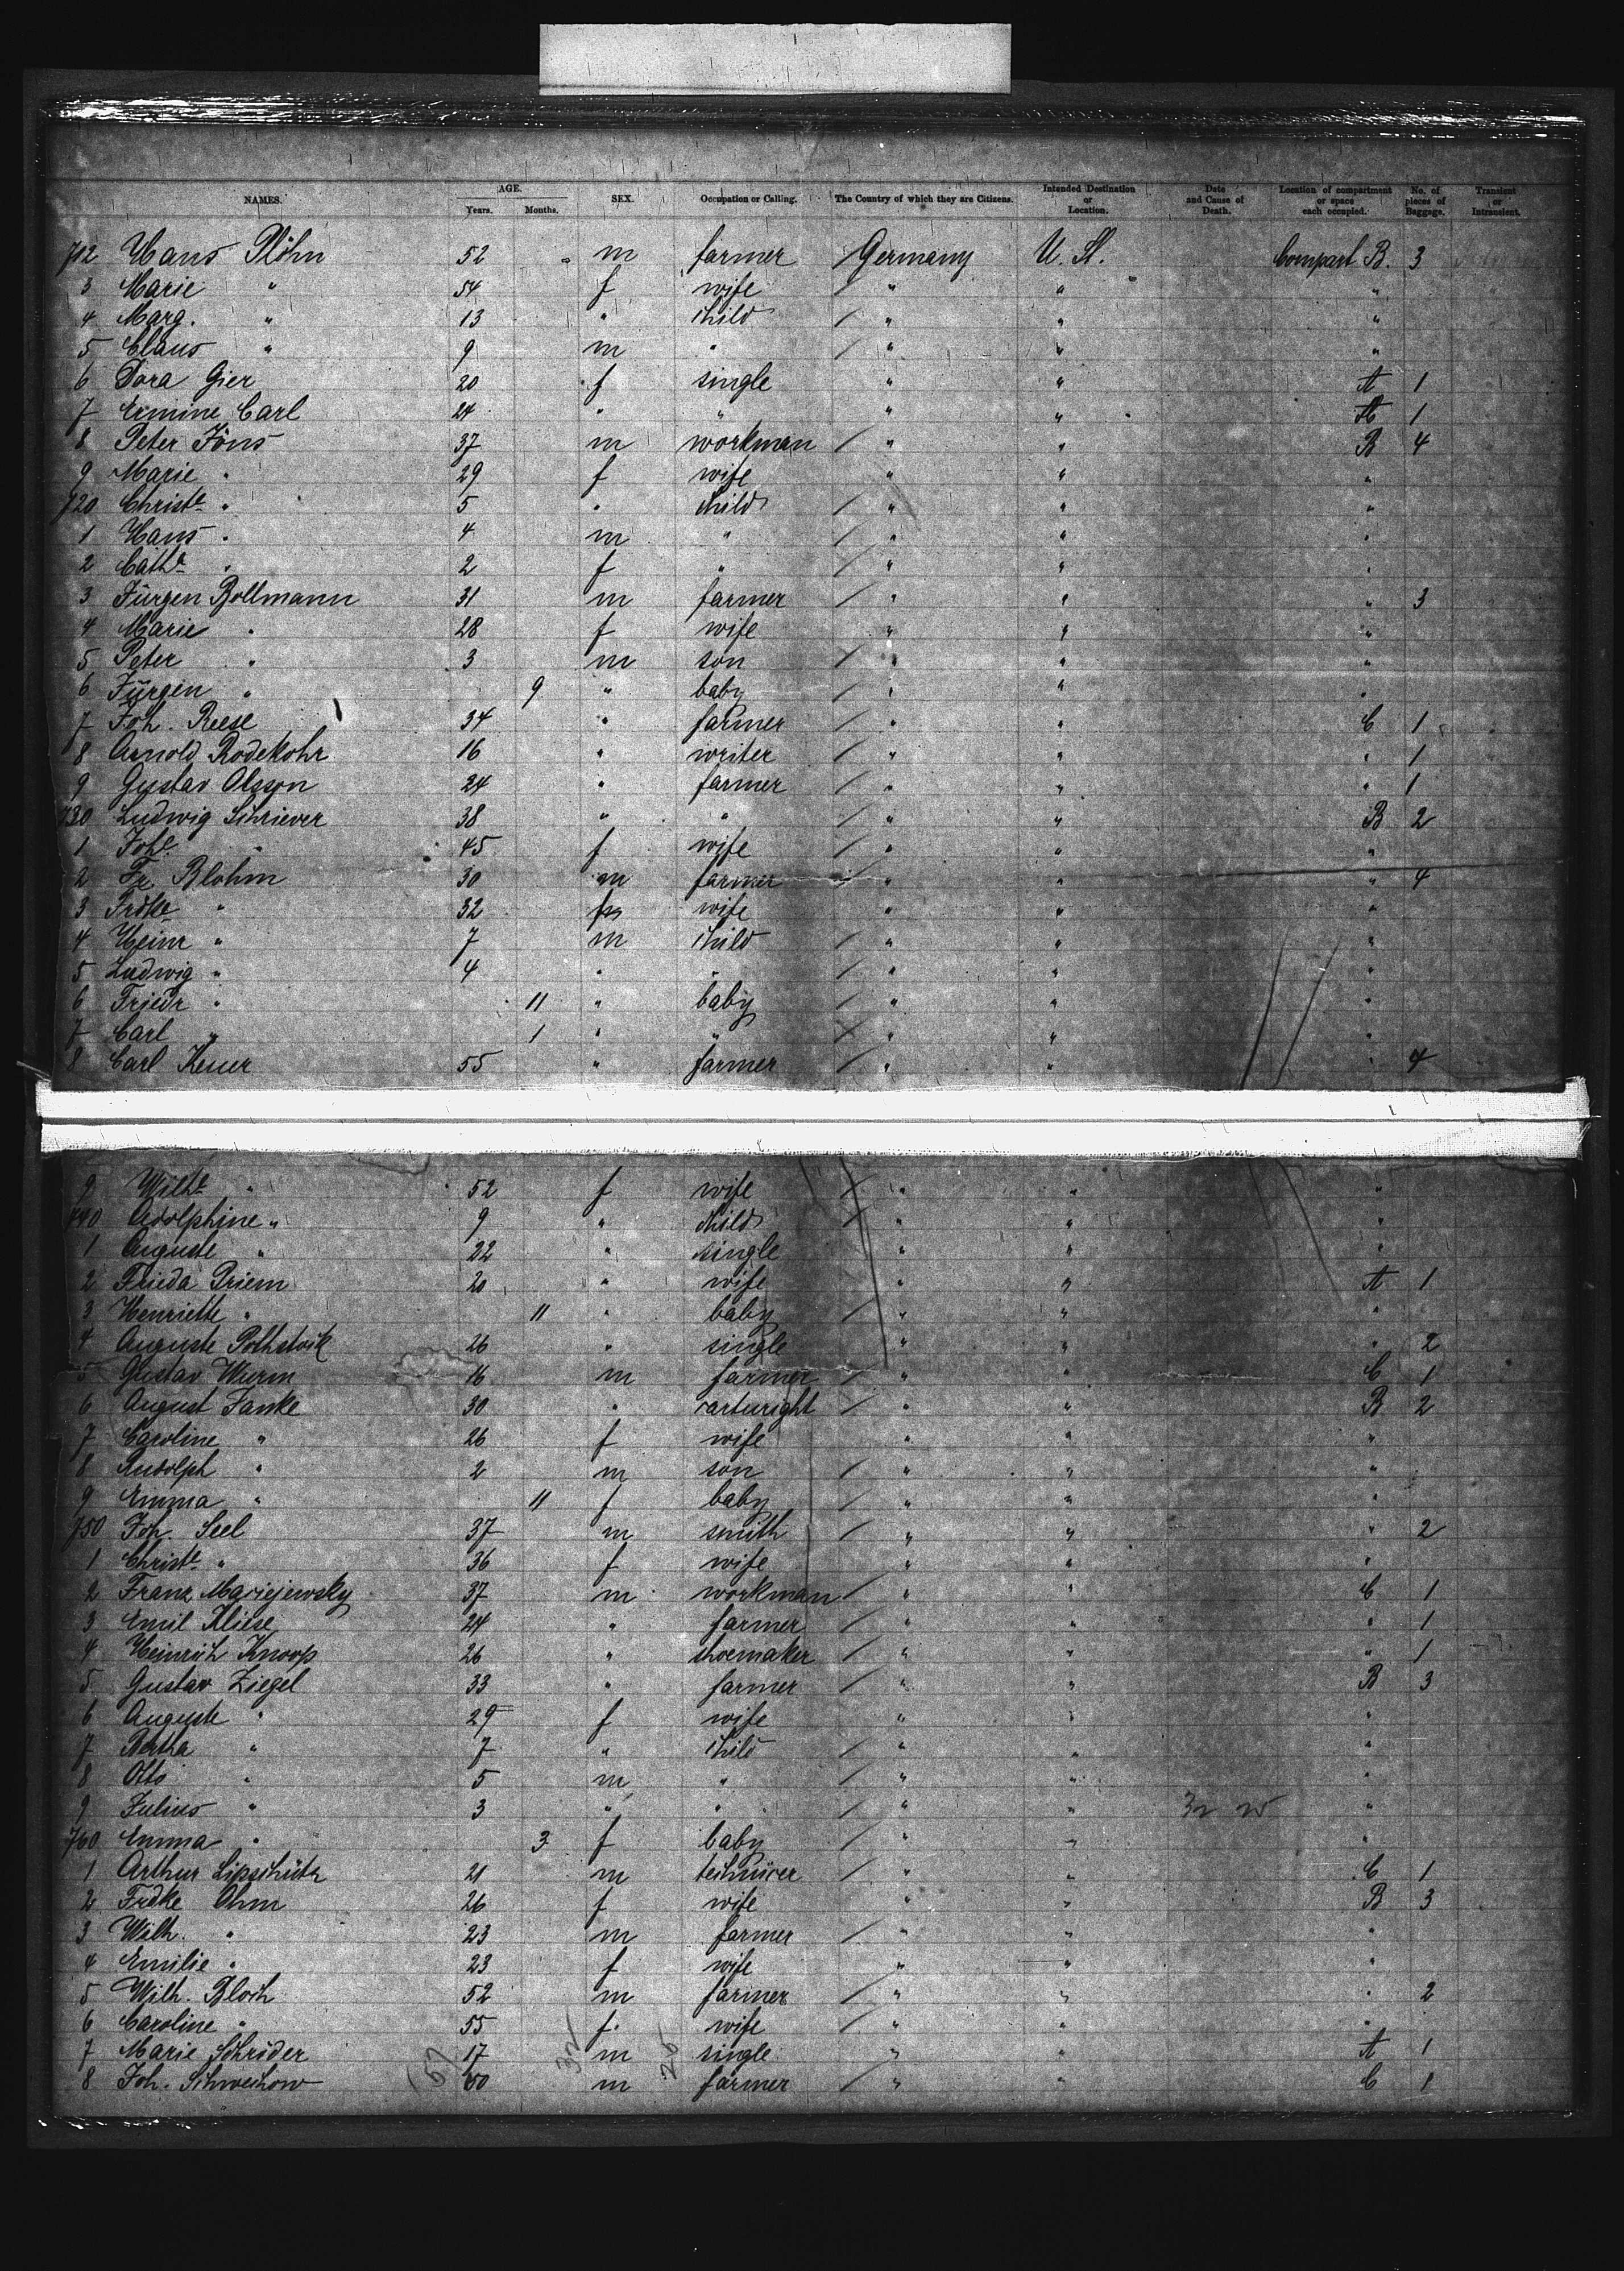 NAMES. AGE. Years. Months. SEX. Occupation or Calling. The Country of which they are Citizens. Intended Destination or Location. Date and Cause of Death. Location of compartment or space each occupied. No. of pieces of Baggage. Transient or Intransient.
712 Hans Plöhn 52 " m farmer / Germany U. St. Compart B. 3
3 Marie " 54 f wife / " " "
4 Marg. " 13 " child / " " "
5 Claus " 9 m " / " " "
6 Dora Gier 20 f single " " A 1
7 Ermine Carl 24 " " " " A 1
8 Peter Jöns 37 m workman / " " B 4
9 Marie " 29 f wife " " "
720 Christe " 5 " child / " " "
1 Hans " 4 m " / " " "
2 Cathe " 2 f " / " " "
3 Jürgen Bollmann 31 m farmer / " " " 3
4 Marie " 28 f wife " " "
5 Peter " 3 m son / " " "
6 Jürgen " 9 " baby / " " "
7 Joh. Reese 34 " farmer / " " C 1
8 Arnold Rodekohr 16 " writer / " " " 1
9 Gustav Olsson 24 " farmer / " " " 1
730 Ludwig Schriever 38 " " / " " B 2
1 Johe " 45 f wife / " " "
2 Fr. Blohm 30 m farmer / " " " 4
3 Frdke " 32 f wife " " "
4 Heinr " 7 m child / " " "
5 Ludwig " 4 " " / " " "
6 Friedr " 11 " baby / " " "
7 Carl " 1 " " / " " "
8 Carl 55 " farmer / " " " 4
9 Wilhe " 52 f wife / " " "
740 Adolphine " 9 " child / " " "
1 Auguste " 22 " single " " "
2 Frieda Priem 20 " wife " " A 1
3 Henriette " 11 " baby / " " "
4 Auguste 26 " single " " " 2
5 Gustav Wurm 16 m farmer / " " C 1
6 August Janke 30 " cartwright / " " B 2
7 Caroline " 26 f wife " " "
8 Rudolph " 2 m son / " " "
9 Emma " 11 f baby / " " "
750 Joh. Seel 37 m smith / " " " 2
1 Christe " 36 f wife " " "
2 Franz Maciejewsky 37 m workman / " " C 1
3 Emil Kliese 24 " farmer / " " " 1
4 Heinrich Knoop 26 " shoemaker / " " " 1
5 Gustav Ziegel 33 " farmer / " " B 3
6 Auguste " 29 f wife " " "
7 Bertha " 7 " child / " " "
8 Otto " 5 m " / " " "
9 Julius " 3 " " / " " "
760 Emma " 3 f baby / " " "
1 Arthur Lipschütz 21 m technicer / " " C 1
2 Frdke Ohm 26 f wife " " B 3
3 Wilh. " 23 m farmer / " " "
4 Emilie " 23 f wife " " "
5 Wilh. Bloch 52 m farmer / " " " 2
6 Caroline " 55 f. wife / " " "
7 Marie Schröder 17 m single " " A 1
8 Joh. Schweshow 50 m farmer / " " C 1